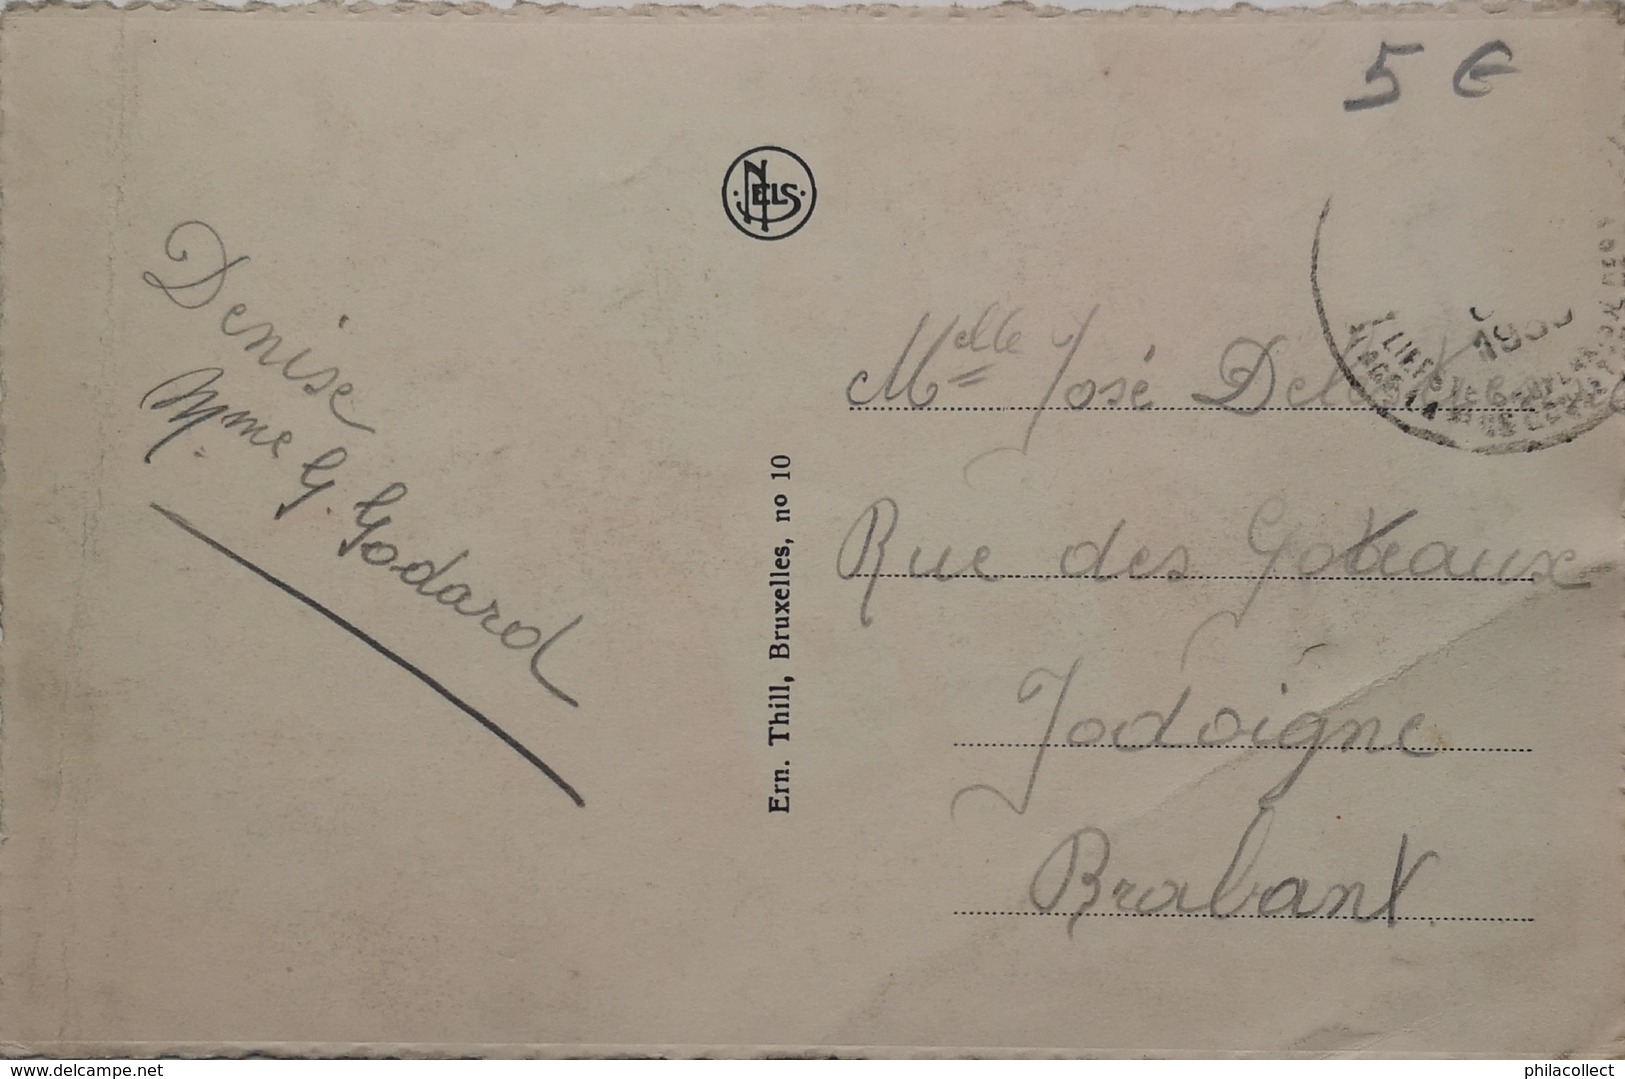 5 €
NELS
Denise
Mme G. Godard
Ern. Thill, Bruxelles, no 10
Melle José
Rue des Goteaux
Jodoigne
Brabant
delcampe.net
philacollect